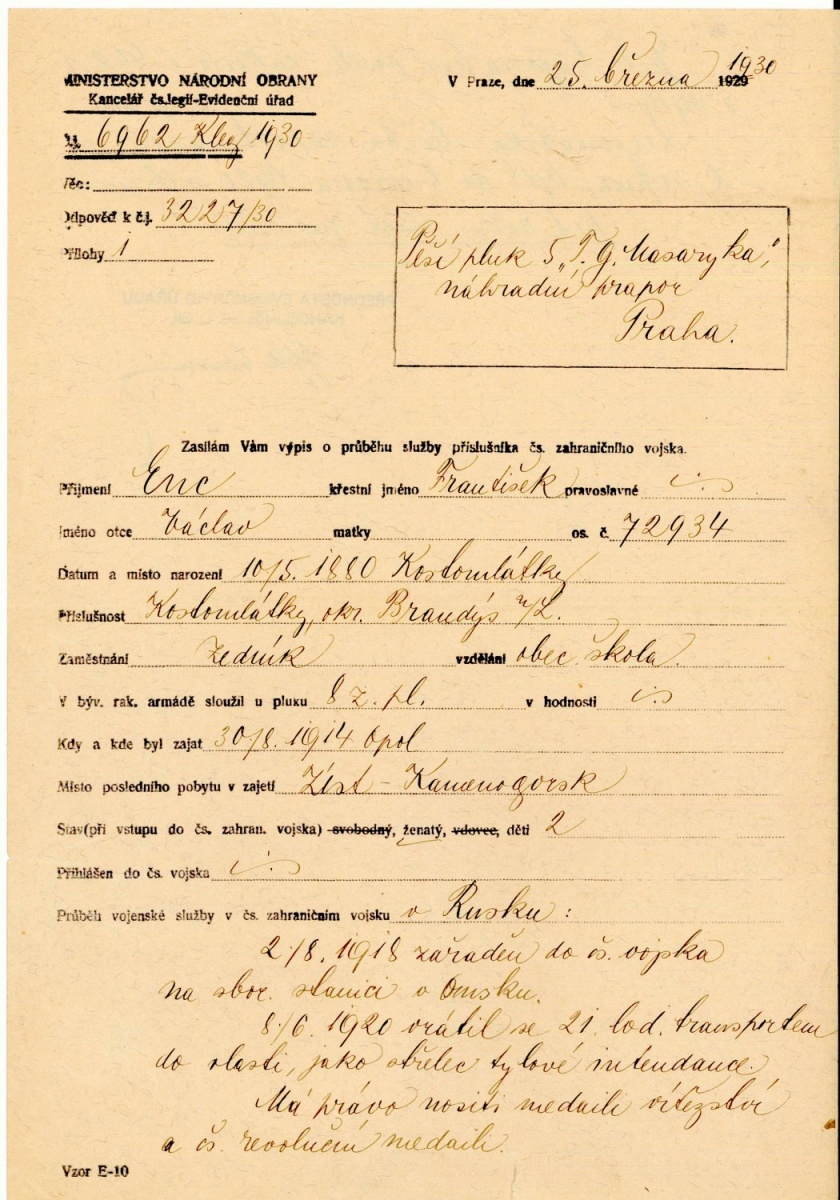 MINISTERSTVO NÁRODNÍ OBRANY
Kancelář čs.legií-Evidenční úřad
V Praze, dne 25. března 1929 1930
Čj. 6962 Kleg 1930
Věc:
Odpověď k č.j. 3227/30
Přílohy 1
Pěší pluk 5 „T. G. Masaryka",
náhradní prapor
Praha.
Zasílám Vám výpis o průběhu služby příslušníka čs. zahraničního vojska.
Příjmení Enc křestní jméno František pravoslavné
Jméno otce Václav matky os. č. 72934
Datum a místo narození 10/5. 1880 Kostomlátky
Příslušnost Kostomlátky, okr. Brandýs n/L.
Zaměstnání zedník vzdělání obec. škola.
V býv. rak. armádě sloužil u pluku 8 z. pl. v hodnosti
Kdy a kde byl zajat 30/8. 1914 Opol
Místo posledního pobytu v zajetí Úst-Kamenogorsk
Stav(při vstupu do čs. zahran. vojska) svobodný, ženatý, vdovec, děti 2
Přihlášen do čs. vojska
Průběh vojenské služby v čs. zahraničním vojsku v Rusku:
2/8. 1918 zařaděn do čs. vojska
na sbor. stanici v Omsku.
8/6. 1920 vrátil se 21. lod. transportem
do vlasti, jako střelec tylové intendance.
Má právo nositi medaili vítězství
a čs. revoluční medaili.
Vzor E-10